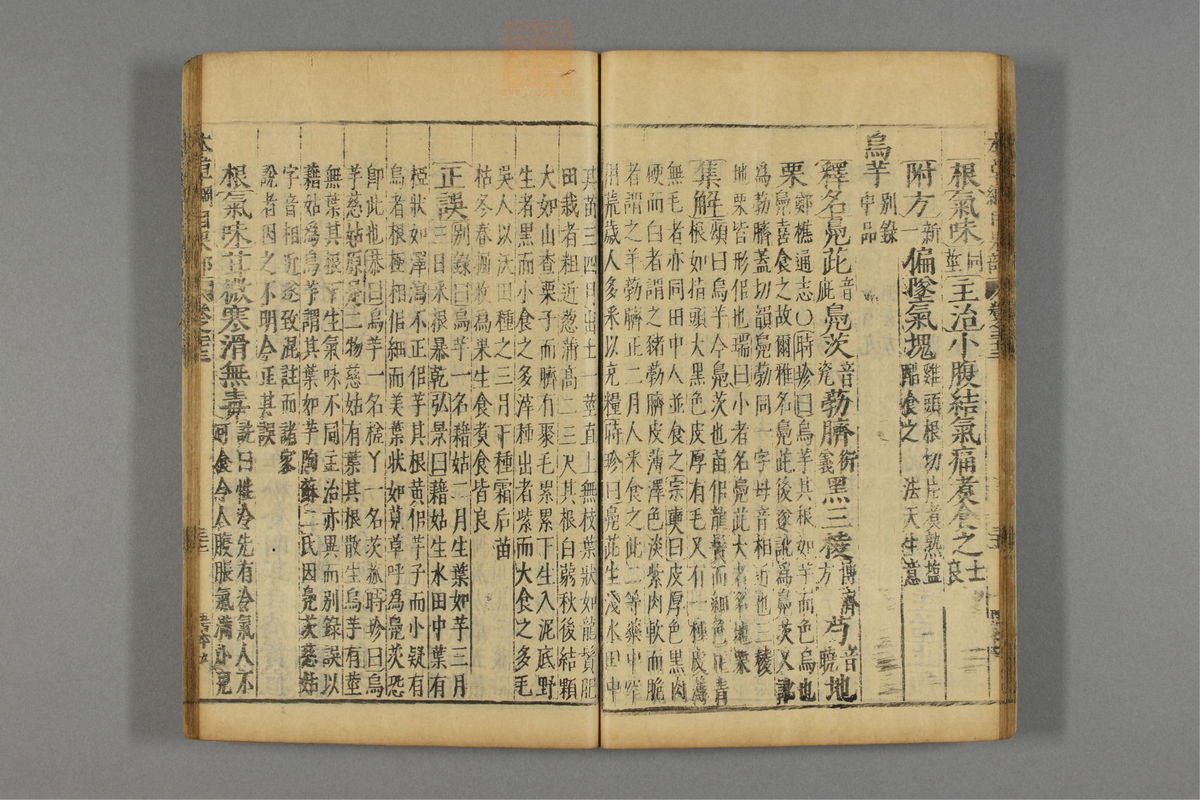 根氣味同莖主治小腹結氣痛煮食之士良
附方新一偏墜氣塊雞頭根切片煮熟鹽醋食之法天生意
烏芋別錄中品
釋名鳧茈音疵鳧茨音瓷葧臍衍義黑三稜博濟方芍音曉地
栗鄭樵通志〇時珍曰烏芋其根如芋而色烏也
鳧喜食之故爾雅名鳧茈後遂訛為鳧茨又訛
為葧臍蓋切韻鳧葧同一字母音相近也三稜
地栗皆形佀也瑞曰小者名鳧茈大者名地栗
集解頌曰烏芋今鳧茨也苗佀龍鬚而細色正青
根如指頭大黑色皮厚有毛又有一種皮薄
無毛者亦同田中人並食之宗奭曰皮厚色黑肉
硬而白者謂之豬葧臍皮薄澤色淡紫肉軟而脆
者謂之羊葧臍正二月人采食之此二等藥中罕
用荒歲人多采以充糧時珍曰鳧茈生淺水田中
其苗三四月出土一莖直上無枝葉狀如龍鬚肥
田栽者粗近葱蒲高二三尺其根白蒻秋後結顆
大如山查栗子而臍有聚毛累累下生入泥底野
生者黑而小食之多滓種出者紫而大食之多毛
吳人以沃田種之三月下種霜后苗
枯冬春掘收為果生食煮食皆良
正誤別錄曰烏芋一名藉姑二月生葉如芋三月
三日采根暴乾弘景曰藉姑生水田中葉有
椏狀如澤瀉不正佀芋其根黃佀芋子而小疑有
烏者根極相佀細而美葉狀如莧草呼為鳧茨恐
卽此也恭曰烏芋一名槎丫一名茨菰時珍曰烏
芋慈姑原是二物慈姑有葉其根散生烏芋有莖
無葉其根下生氣味不同主治亦異而別錄誤以
藉姑為烏芋謂其葉如芋陶蘇二氏因鳧茨慈姑
字音相近遂致混註而諸家
說者因之不明今正其誤
根氣味甘微寒滑無毒詵曰性冷先有冷氣人不
可食令人腹脹氣滿小兒